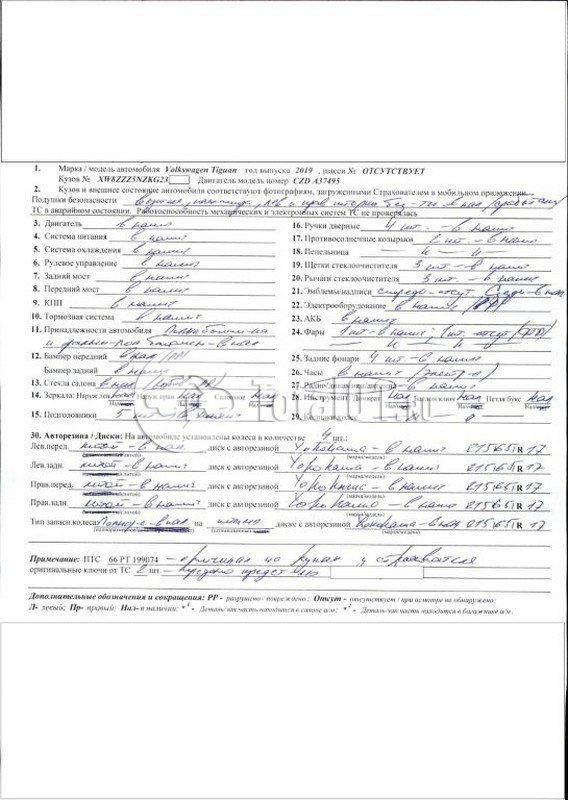 1. Марка / модель автомобиля Volkswagen Tiguan год выпуска 2019 , шасси № ОТСУТСТВУЕТ
Кузов № XW8ZZZ5NZKG23 Двигатель модель номер CZD A37495
2. Кузов и внешнее состояние автомобиля соответствуют фотографиям, загруженными Страхователем в мобильном приложении.
Подушки безопасности
ТС в аварийном состоянии. Работоспособность механических и электронных систем ТС не проверялась
3. Двигатель в налич
4. Система питания в налич
5. Система охлаждения в налич
6. Рулевое управление в налич
7. Задний мост в налич
8. Передний мост в налич
9. КПП в налич
10. Тормозная система в налич
11. Принадлежности автомобиля
12. Бампер передний в нал /РР/
Бампер задний в налич
13. Стекла салона в нал
14. Зеркала: Наружлев нал Наруж.прав нал Салонное нал
15. Подголовники 5 шт - в налич
16. Ручки дверные 4 шт. - в налич
17. Противосолнечные козырьки 2 шт - в налич
18. Пепельница
19. Щетки стеклоочистителя 3 шт. - в налич
20. Рычаги стеклоочистителя 3 шт. - в налич
21. Эмблемы/надписи спереди - отсут. Сзади - в нал
22. Электрооборудование в налич /РР/
23. АКБ в налич
24. Фары 1 шт - в налич, 1 шт. - отсут
25. Задние фонари 4 шт - в налич
26. Часы в налич
27. Радио в налич
28. Инструмент Домкрат нал Баллон.ключ нал Петля букс нал
29. Колпаки колес
30. Авторезина / Диски: На автомобиле установлены колеса в количестве 4 шт.:
Лев.перед. литой - в нал. диск с авторезиной Yokohama - в налич 215/65/R 17
Лев.задн. литой - в налич диск с авторезиной Yokohama - в налич 215/65/R 17
Прав.перед. литой - в налич диск с авторезиной Yokohama - в налич 215/65/R 17
Прав.задн. литой - в налич диск с авторезиной Yokohama - в налич 215/65/R 17
Тип запасн.колеса на диске с авторезиной Yokohama - в нал 215/65/R 17
Примечание: ПТС 66 РТ 199074 - оригинал на руках у страхователя
оригинальные ключи от ТС 2 шт. -
Дополнительные обозначения и сокращения: РР - разрушено / повреждено; Отсут - отсутствует / при осмотре не обнаружено;
Л- левый; Пр- правый; Нал- в наличии; *¹ - Деталь/запчасть находится в салоне а/м; *² - Деталь/запчасть находится в багажнике а/м.